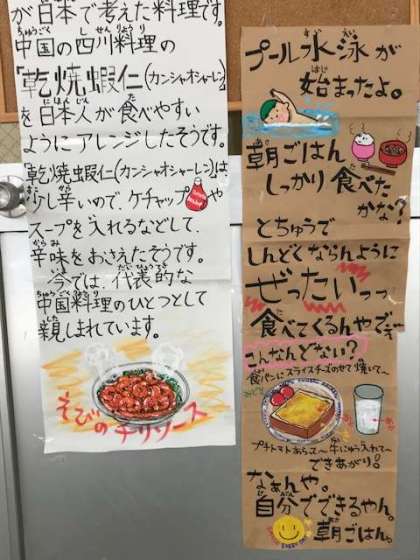 が日本で考えた料理です。
中国の四川料理の
「乾焼蝦仁(カンシャオシャーレン)」
を日本人が食べやすい
ようにアレンジしたそうです。
「乾焼蝦仁(カンシャオシャーレン)」は
少し辛いので、ケチャップや
スープを入れるなどして、
辛味をおさえたそうです。
今では、代表的な
中国料理のひとつとして
親しまれています。
えびのチリソース
プール水泳が
始まったよ。
朝ごはん
しっかり食べた
かな?
とちゅうで
しんどくならんように
ぜったいっっ
食べてくるんやでぇー
こんなんどない?
食パンにスライスチーズのせて焼いて〜
プチトマトあらって〜牛にゅう入れて〜
できあがり!
なぁんや。
自分でできるやん。
朝ごはん。